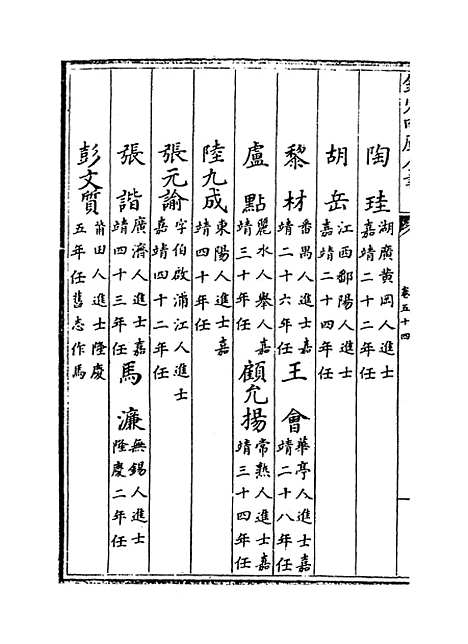 欽定四庫全書
卷五十四
陶珪湖廣黃岡人進士嘉靖二十二年任
胡岳江西鄱陽人進士嘉靖二十四年任
黎材番禺人進士嘉靖二十六年任 王會華亭人進士嘉靖二十八年任
盧點麗水人舉人嘉靖三十年任 顧允揚常熟人進士嘉靖三十四年任
陸九成東陽人進士嘉靖四十年任
張元諭字伯啟浦江人進士嘉靖四十二年任
張諧廣濟人進士嘉靖四十三年任 馬濂無錫人進士隆慶二年任
彭文質莆田人進士隆慶五年任舊志作馬